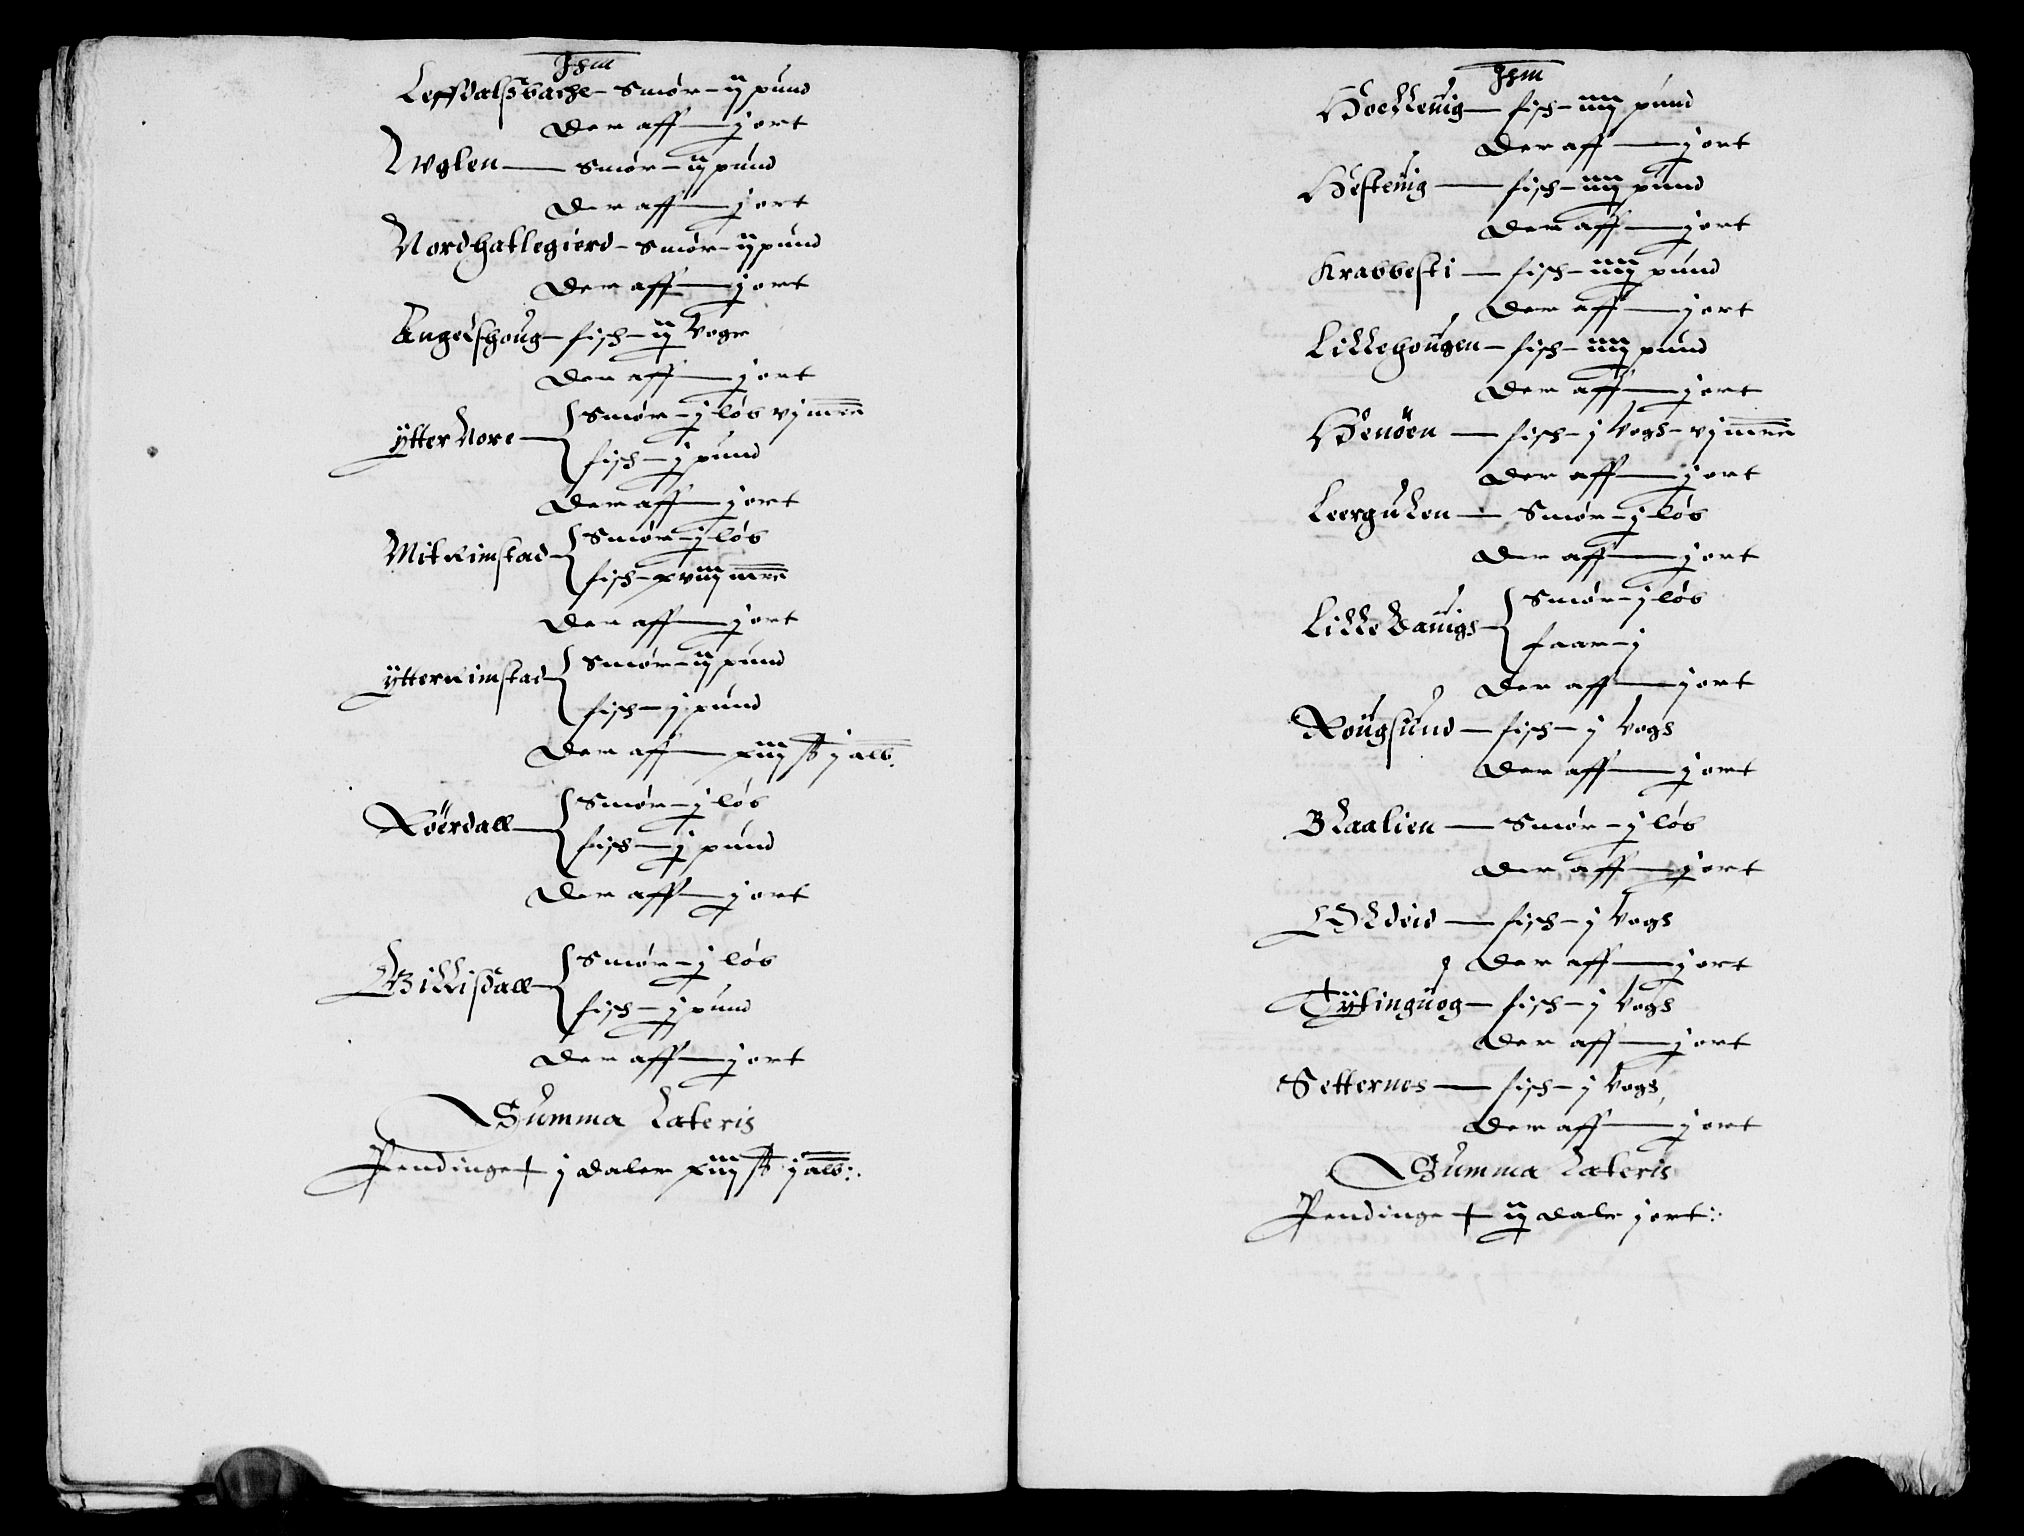 Jtem
Leffdalsbache - Smør - ij pund
Der aff — j ort
Nvglen — Smør - ij pund
Der aff — j ort
Nordhatlegierd - Smør - ij pund
Der aff — j ort
Angelshoug - fisch - ij Voge
Der aff — j ort
Ytter Nore — Smør - j løb vj mrk
fisch - j pund
Der aff — j ort
Mit Rimstad - Smør - j løb
fisch - xviij mrk
Der aff — j ort
Ytter Rimstad - Smør - ij pund
fisch - j pund
Der aff — xiij ß j alb.
Röerdall — Smør - j løb
fisch - j pund
Der aff — j ort
Billisdall - Smør - j løb
fisch - j pund
Der aff — j ort
Summa Lateris
Pendinge + j daler xiij ß j alb:.
Jtem
Hoelleuig — fisch - iiij pund
Der aff — j ort
Hesteuig — fisch - iiij pund
Der aff — j ort
Krabbesti — fisch - iiij pund
Der aff — j ort
Lillehougen - fisch - iiij pund
Der aff — j ort
Henöen — fisch - j Vogs - vj mrk
Der aff — j ort
Leergulen — Smør - j løb
Der aff — j ort
Lille Bauigs - Smør - j løb
faar - j
Der aff — j ort
Rougsund — fisch - j Vogs
Der aff — j ort
Blaalien — Smør - j løb
Der aff — j ort
Oldeid — fisch - j Vogs
Der aff — j ort
Tytinguog - fisch - j Vogs
Der aff — j ort
Setternes — fisch - j Vogs,
Der aff — j ort
Summa Lateris
Pendinge + ij daler j ort:.